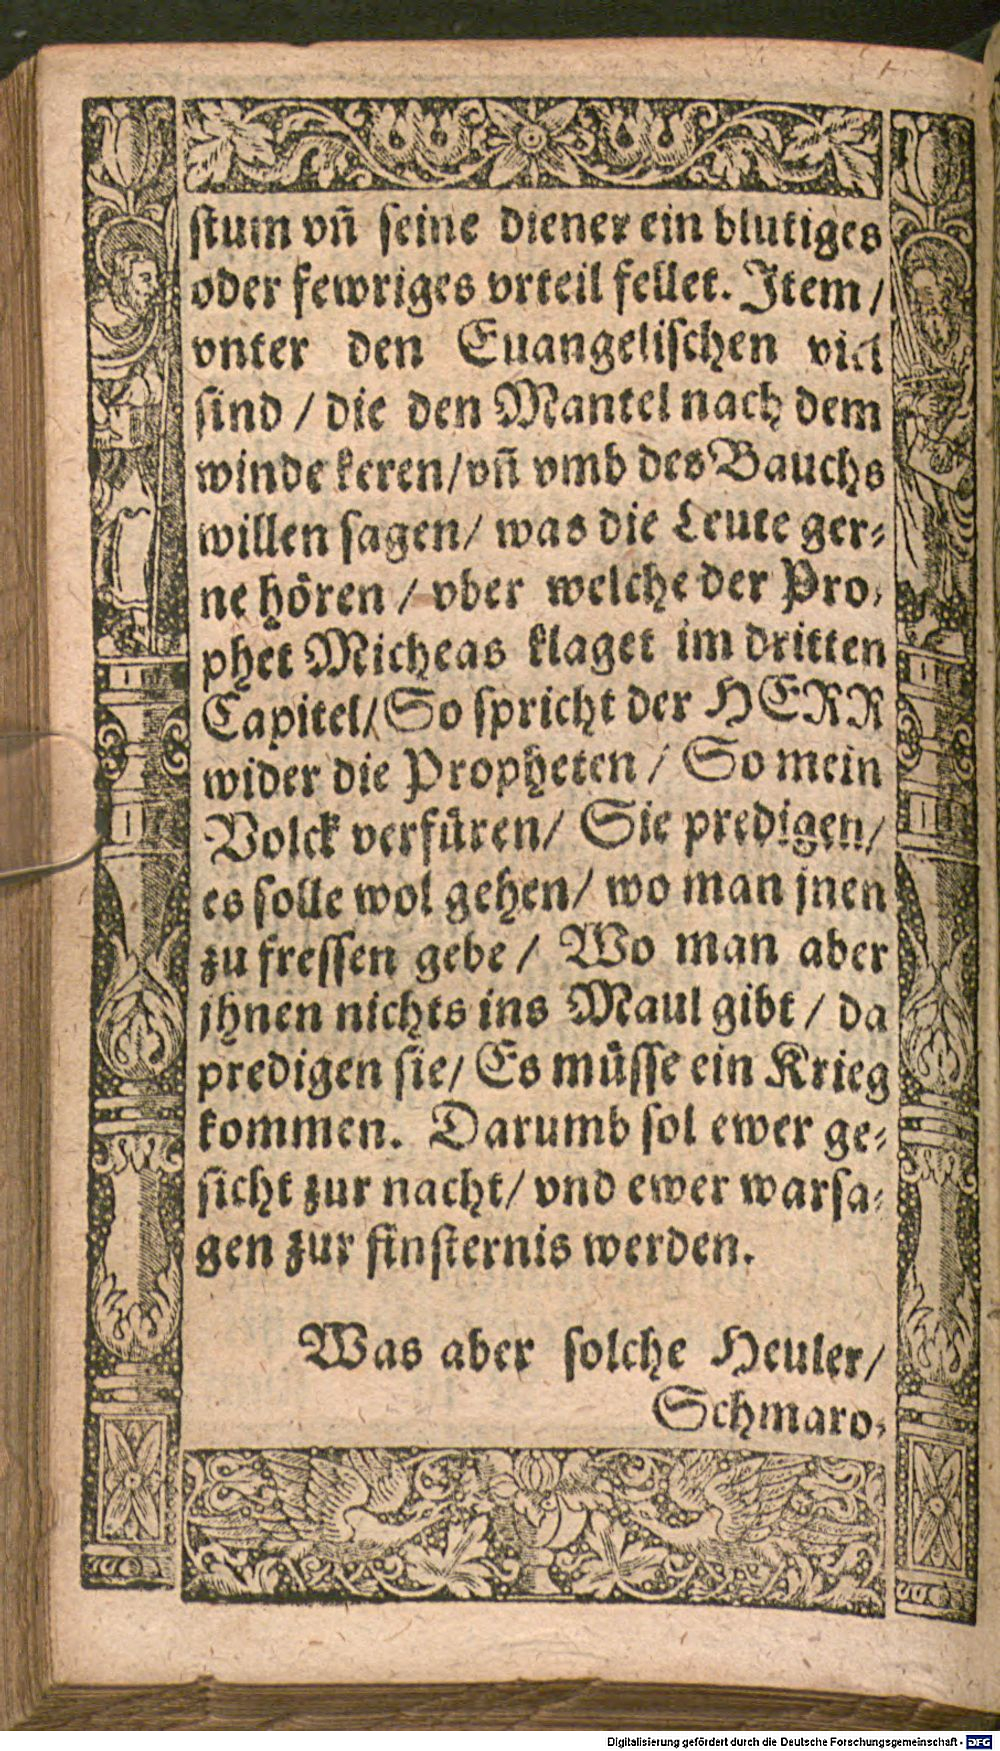 stum vñ seine diener ein blutiges
oder fewriges vrteil fellet. Item /
vnter den Euangelischen viel
sind / die den Mantel nach dem
winde keren / vñ vmb des Bauchs
willen sagen / was die Leute ger-
ne hören / vber welche der Pro-
phet Micheas klaget im dritten
Capitel / So spricht der HERR
wider die Propheten / So mein
Volck verfüren / Sie predigen /
es solle wol gehen / wo man jnen
zu fressen gebe / Wo man aber
jhnen nichts ins Maul gibt / da
predigen sie / Es müsse ein Krieg
kommen. Darumb sol ewer ge-
sicht zur nacht / vnd ewer warsa-
gen zur finsternis werden.
Was aber solche Heuler /
Schmaro-
Digitalisierung gefördert durch die Deutsche Forschungsgemeinschaft - DFG